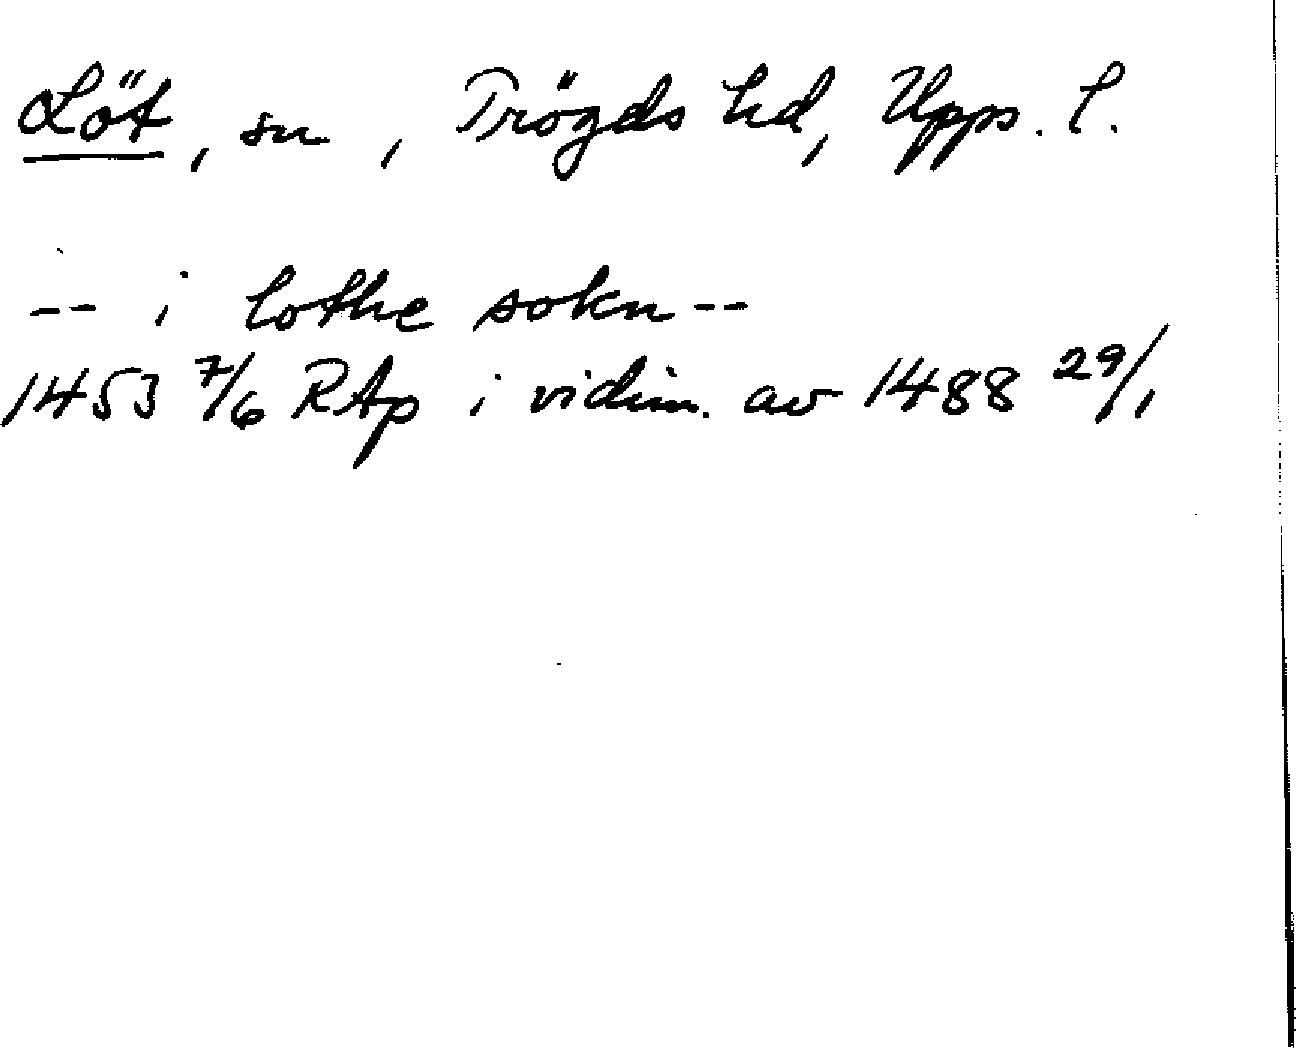 Löt, sn, Trögds hd, Upps. l.
-- i lothe sokn --
1453 7/6 RAp i vidim. av 1488 29/1